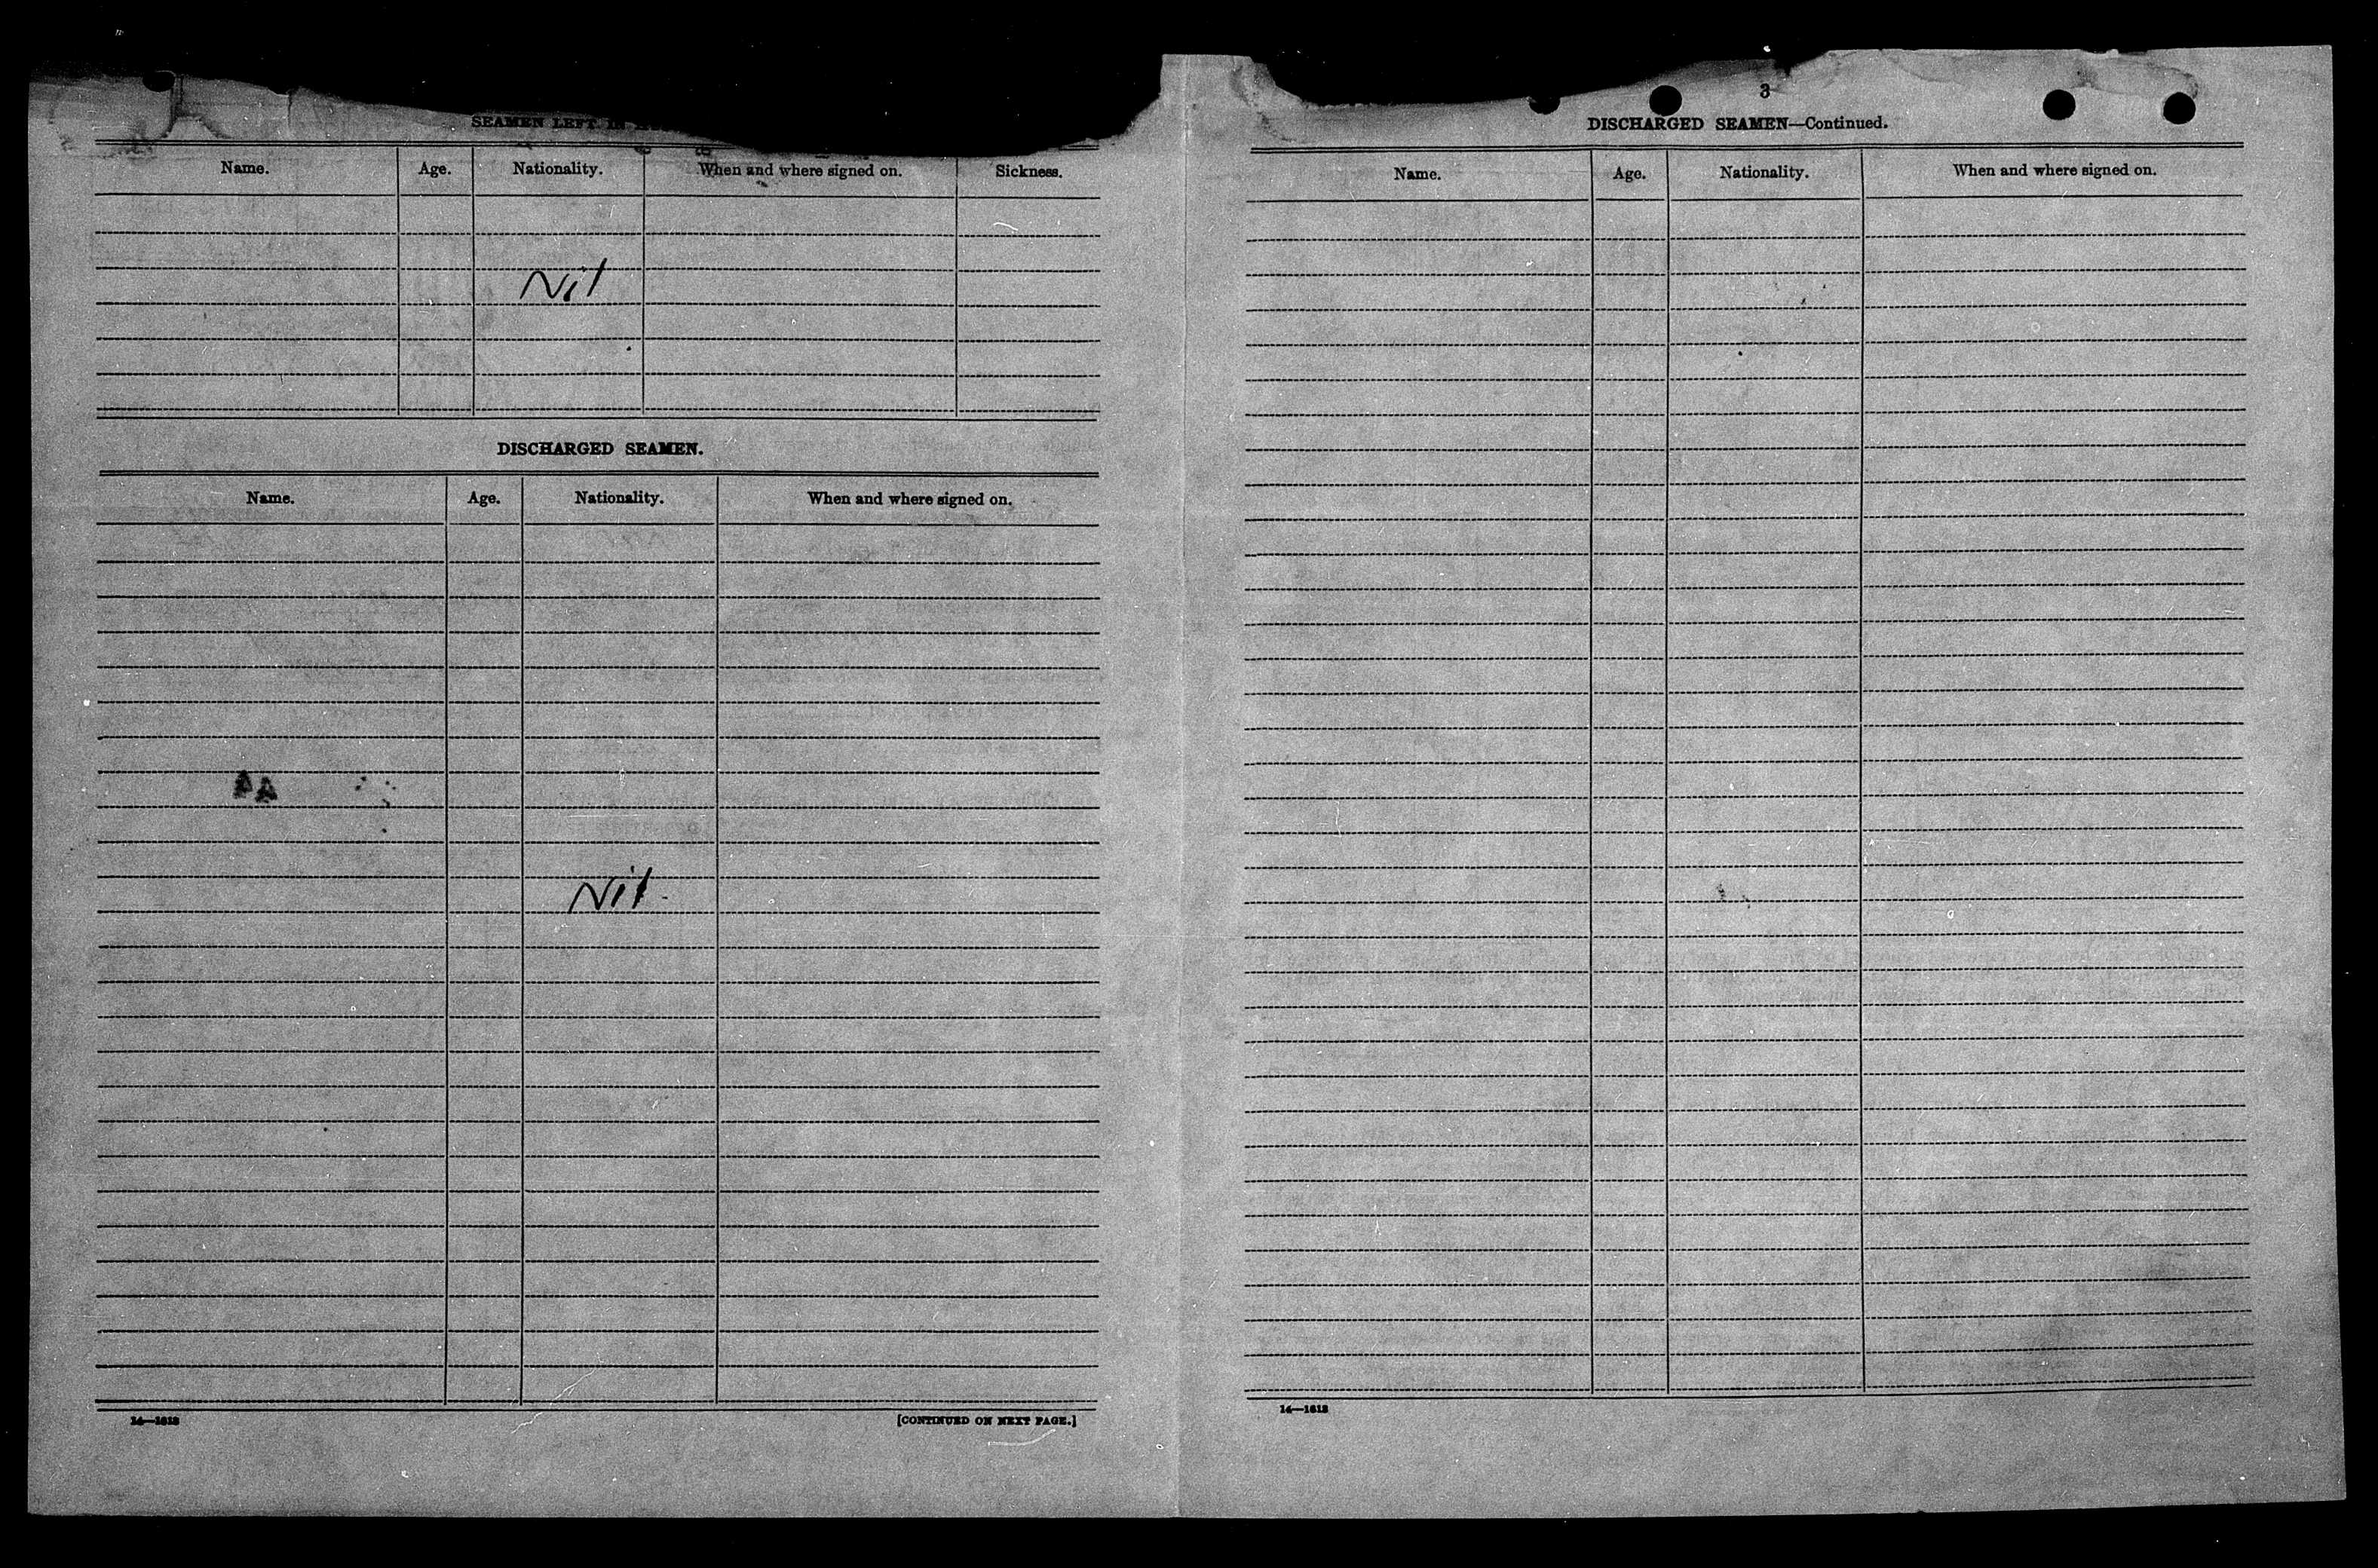 SEAMEN LEFT IN
Name. Age. Nationality. When and where signed on. Sickness.
Nil
DISCHARGED SEAMEN.
Name. Age. Nationality. When and where signed on.
Nil
14—1613 [CONTINUED ON NEXT PAGE.]
3
DISCHARGED SEAMEN—Continued.
Name. Age. Nationality. When and where signed on.
14—1613